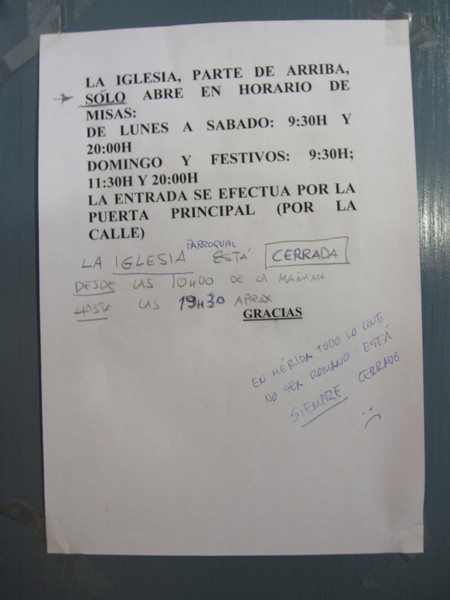 LA IGLESIA, PARTE DE ARRIBA,
SÓLO ABRE EN HORARIO DE
MISAS:
DE LUNES A SABADO: 9:30H Y
20:00H
DOMINGO Y FESTIVOS: 9:30H;
11:30H Y 20:00H
LA ENTRADA SE EFECTUA POR LA
PUERTA PRINCIPAL (POR LA
CALLE)
LA IGLESIA PARROQUIAL ESTÁ CERRADA
DESDE LAS 10H00 DE LA MAÑANA
HASTA LAS 19H30 APROX
GRACIAS
EN MÉRIDA TODO LO QUE
NO SEA ROMANO ESTÁ
SIEMPRE CERRADO